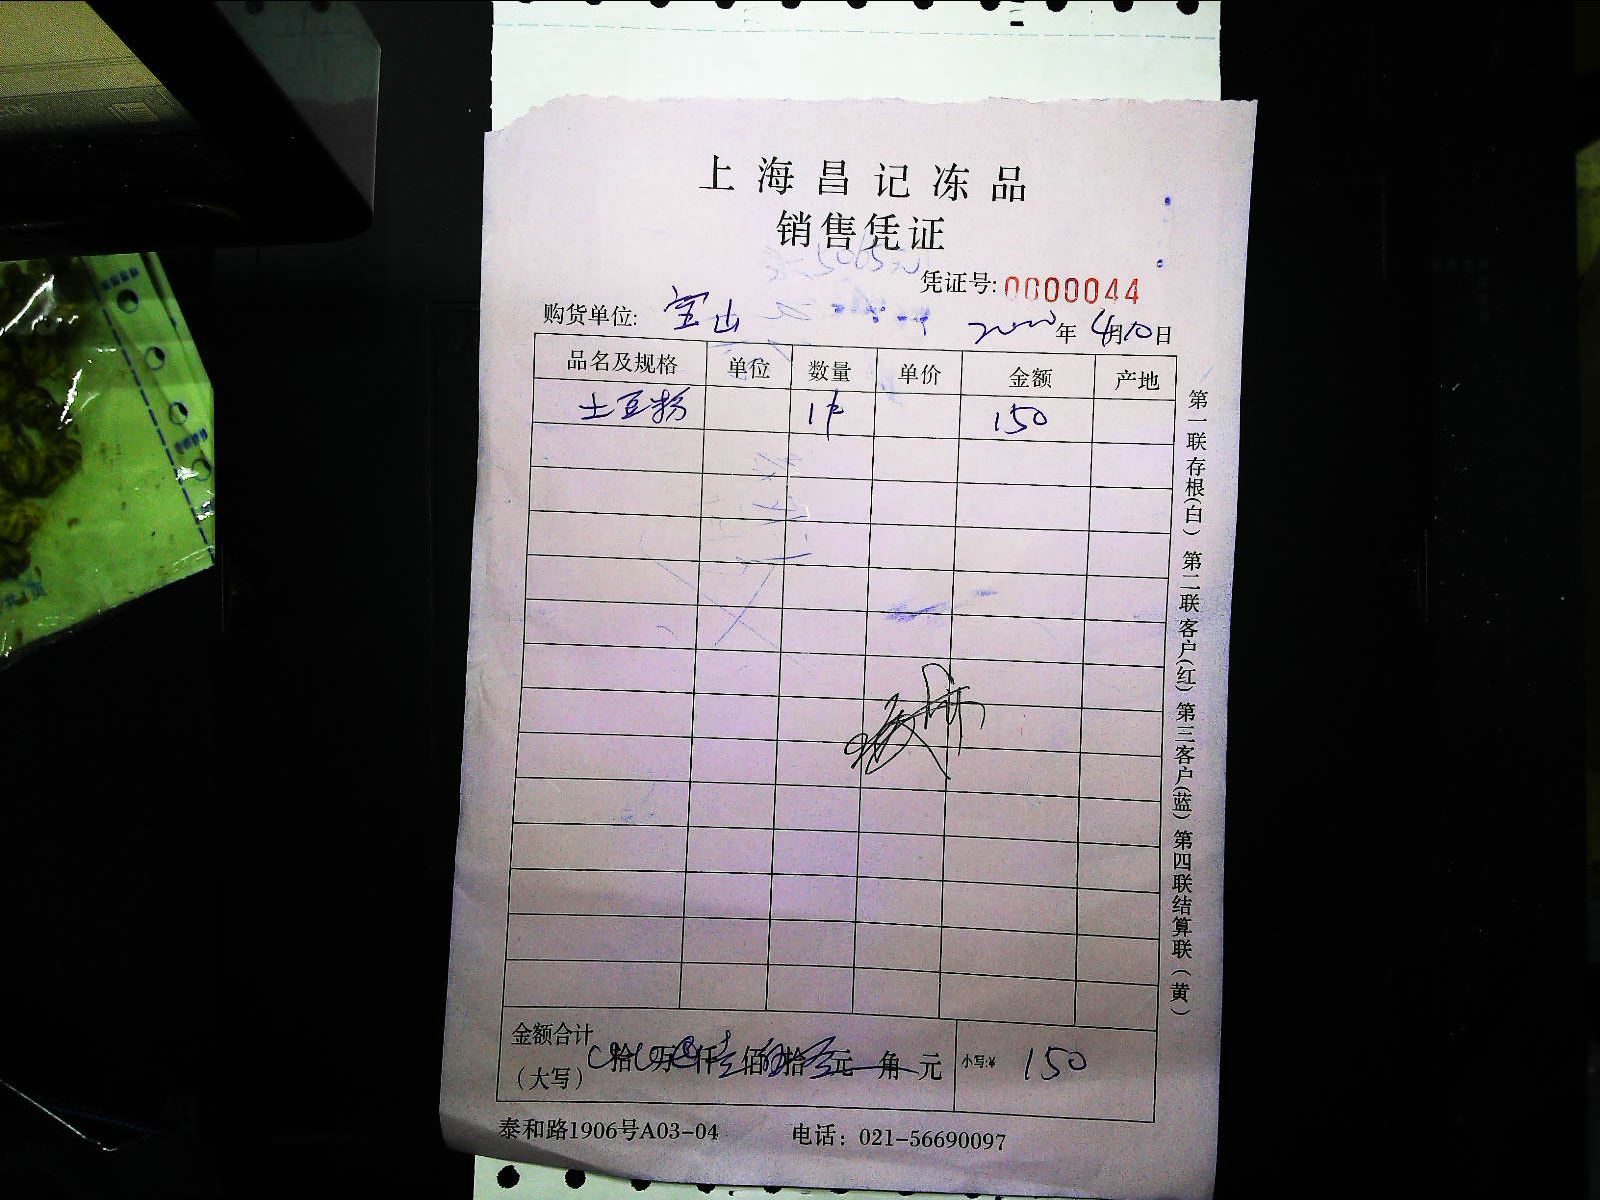 上海昌记冻品
销售凭证
凭证号: 0000044
购货单位: 宝山 年 4月10日
品名及规格 单位 数量 单价 金额 产地
土豆粉 1件 150
金额合计
(大写) 拾 万 仟壹佰伍拾 元 角 元 小写:¥ 150
泰和路1906号A03-04 电话: 021-56690097
第一联存根(白) 第二联客户(红) 第三客户(蓝) 第四联结算联(黄)